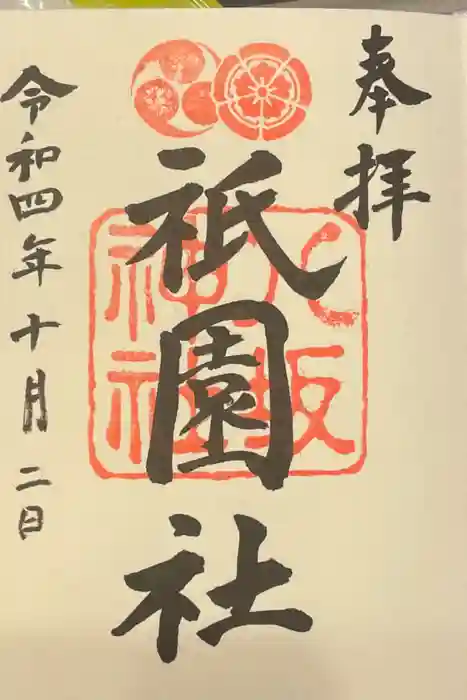 奉拝
祇園社
八坂
神社
令和四年十月二日